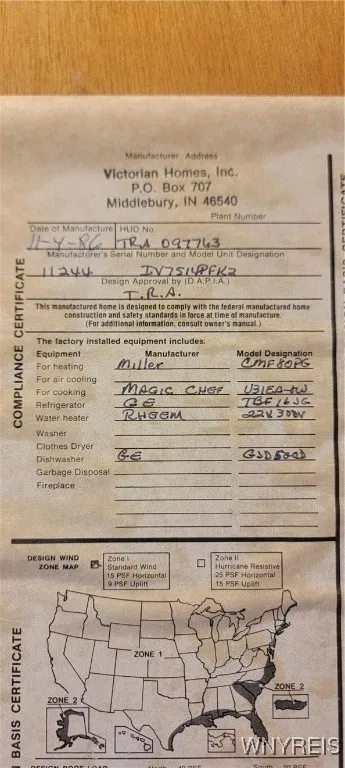 Manufacturer Address
Victorian Homes, Inc.
P.O. Box 707
Middlebury, IN 46540
Plant Number
Date of Manufacture HUD No.
11-4-86 TRA 097763
Manufacturer's Serial Number and Model Unit Designation
11244
Design Approval by (D.A.P.I.A.)
T.R.A.
This manufactured home is designed to comply with the federal manufactured home
construction and safety standards in force at time of manufacture.
(For additional information, consult owner's manual.)
COMPLIANCE CERTIFICATE
The factory installed equipment includes:
Equipment Manufacturer Model Designation
For heating Miller CMF80PG
For air cooling
For cooking MAGIC CHEF
Refrigerator GE TBF16JG
Water heater RHEEM
Washer
Clothes Dryer
Dishwasher GE
Garbage Disposal
Fireplace
DESIGN WIND
ZONE MAP
Zone I
Standard Wind
15 PSF Horizontal
9 PSF Uplift
Zone II
Hurricane Resistive
25 PSF Horizontal
15 PSF Uplift
ZONE 1
ZONE 2
ZONE 2
BASIS CERTIFICATE
WNYREIS